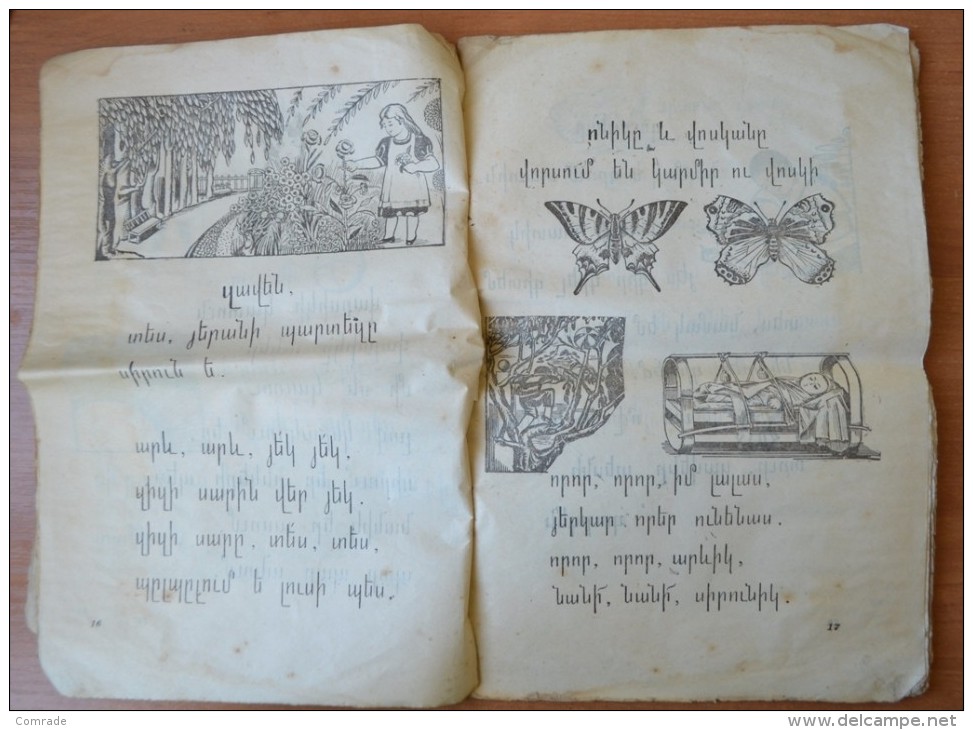 զավեն,
տես, յերանի պարտեզը
սիրուն ե.
արև, արև, յեկ յեկ.
զիզի սարին վեր յեկ.
զիզի սարը, տես, տես,
պըլպըլում ե լուսի պես.
16
ոնիկը և վոսկանը
վորսում են կարմիր ու վոսկի
որոր, որոր, իմ լալաս,
յերկար որեր ունենաս.
որոր, որոր, արևիկ,
նանի՜, նանի՜, սիրունիկ.
17
Comrade
delcampe.net